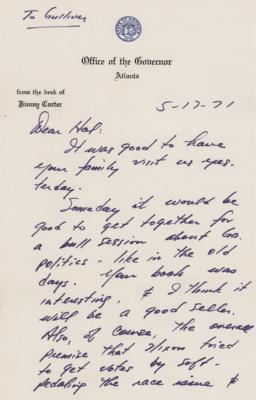 To Gulliver
Office of the Governor
Atlanta
from the desk of
Jimmy Carter
5-17-71
Dear Hal:
It was good to have
your family visit us yes-
terday.
Someday it would be
good to get together for
a bull session about Ga.
politics - like in the old
days. Your book was
interesting, & I think it
will be a good seller.
Also, of course, the overall
premise that Nixon tried
to get votes by soft-
pedaling the race issue &